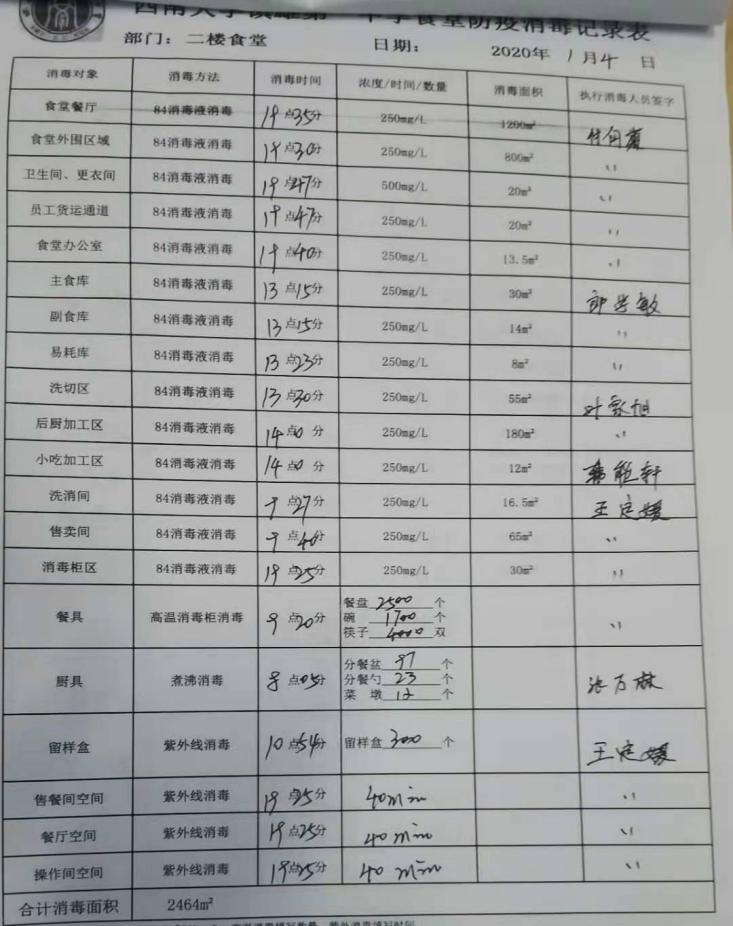 中学食堂防疫消毒记录表
部门：二楼食堂 日期： 2020年 1月4 日
消毒对象 消毒方法 消毒时间 浓度/时间/数量 消毒面积 执行消毒人员签字
食堂餐厅 84消毒液消毒 19点35分 250mg/L 1200m²
食堂外围区域 84消毒液消毒 19点30分 250mg/L 800m² 〃
卫生间、更衣间 84消毒液消毒 19点47分 500mg/L 20m² 〃
员工货运通道 84消毒液消毒 19点47分 250mg/L 20m² 〃
食堂办公室 84消毒液消毒 19点40分 250mg/L 13.5m² 〃
主食库 84消毒液消毒 13点15分 250mg/L 30m²
副食库 84消毒液消毒 13点15分 250mg/L 14m² 〃
易耗库 84消毒液消毒 13点23分 250mg/L 8m² 〃
洗切区 84消毒液消毒 13点30分 250mg/L 55m² 叶家旭
后厨加工区 84消毒液消毒 14点0分 250mg/L 180m² 〃
小吃加工区 84消毒液消毒 14点0分 250mg/L 12m²
洗消间 84消毒液消毒 9点27分 250mg/L 16.5m² 王定媛
售卖间 84消毒液消毒 9点40分 250mg/L 65m² 〃
消毒柜区 84消毒液消毒 19点25分 250mg/L 30m² 〃
餐具 高温消毒柜消毒 9点20分 餐盘2500个 〃
碗1700个
筷子4000双
厨具 煮沸消毒 8点05分 分餐盆97个 张万林
分餐勺23个
菜墩12个
留样盒 紫外线消毒 10点54分 留样盒300个 王定媛
售餐间空间 紫外线消毒 19点25分 40min 〃
餐厅空间 紫外线消毒 19点25分 40min 〃
操作间空间 紫外线消毒 19点25分 40min 〃
合计消毒面积 2464m²